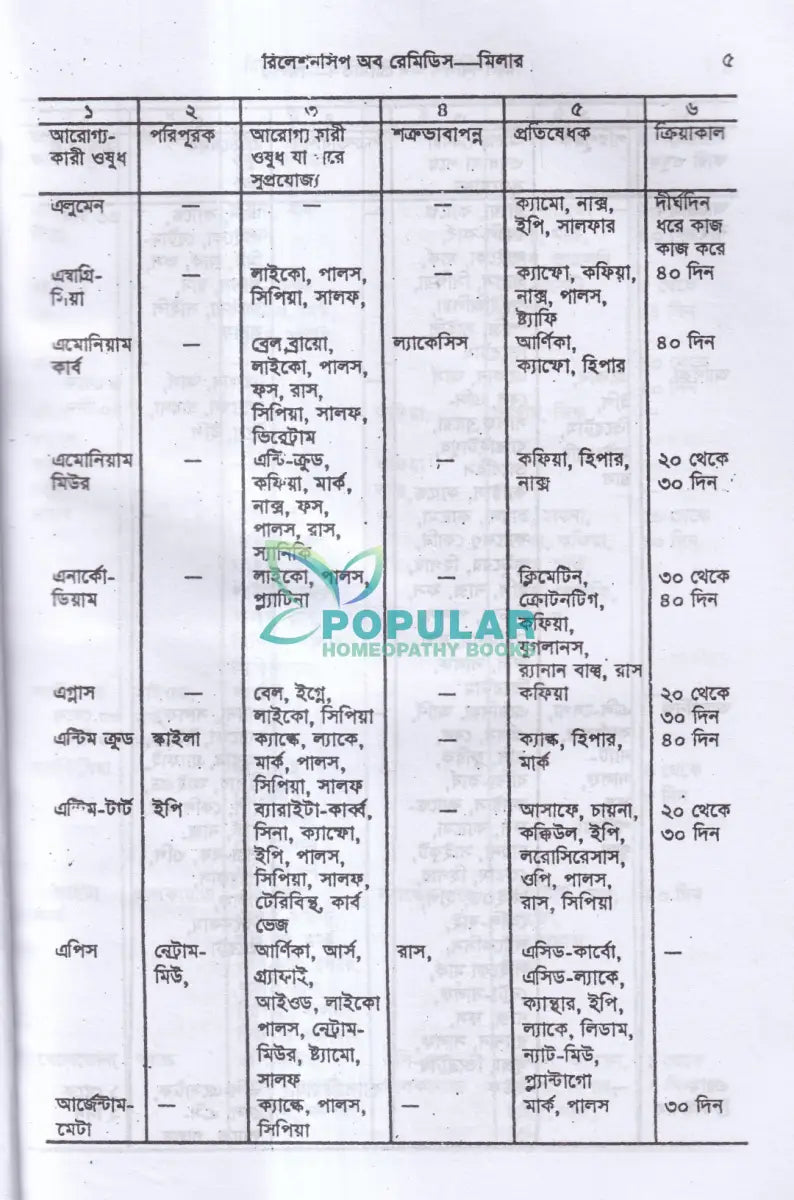 রিলেশনসিপ অব রেমিডিস—মিলার ৫
১ ২ ৩ ৪ ৫ ৬
আরোগ্য- পরিপূরক আরোগ্যকারী শত্রুভাবাপন্ন প্রতিষেধক ক্রিয়াকাল
কারী ওষুধ ওষুধ যা পরে
সুপ্রযোজ্য
এলুমেন — — — ক্যামো, নাক্স, দীর্ঘদিন
ইপি, সালফার ধরে কাজ
কাজ করে
এম্বাগ্রি- — লাইকো, পালস, — ক্যাম্ফো, কফিয়া, ৪০ দিন
সিয়া সিপিয়া, সালফ, নাক্স, পালস,
ষ্ট্যাফি
এমোনিয়াম — বেল,ব্রায়ো, ল্যাকেসিস আর্ণিকা, ৪০ দিন
কার্ব লাইকো, পালস, ক্যাম্ফো, হিপার
ফস, রাস,
সিপিয়া, সালফ,
ভিরেট্রাম
এমোনিয়াম — এন্টি-ক্রুড, — কফিয়া, হিপার, ২০ থেকে
মিউর কফিয়া, মার্ক, নাক্স ৩০ দিন
নাক্স, ফস,
পালস, রাস,
স্যানিকি
এনার্কো- — লাইকো, পালস, — ক্লিমেটিন, ৩০ থেকে
ডিয়াম প্ল্যাটিনা ক্রোটনটিগ, ৪০ দিন
POPULAR
HOMEOPATHY BOOKS
কফিয়া,
র‍্যানান বাল্ব, রাস
এগ্নাস — বেল, ইগ্নে, — কফিয়া ২০ থেকে
লাইকো, সিপিয়া ৩০ দিন
এন্টিম ক্রুড স্কাইলা ক্যাল্কে, ল্যাকে, — ক্যাল্ক, হিপার, ৪০ দিন
মার্ক, পালস, মার্ক
সিপিয়া, সালফ
এন্টিম-টার্ট ইপি ব্যারাইটা-কার্ব্ব, — আসাফে, চায়না, ২০ থেকে
সিনা, ক্যাম্ফো, কক্কিউল, ইপি, ৩০ দিন
ইপি, পালস, লরোসিরেসাস,
সিপিয়া, সালফ, ওপি, পালস,
টেরিবিন্থ, কার্ব রাস, সিপিয়া
ভেজ
এপিস নেট্রাম- আর্ণিকা, আর্স, রাস, এসিড-কার্বো, —
মিউ, গ্র্যাফাই, এসিড-ল্যাকে,
আইওড, লাইকো ক্যান্থার, ইপি,
পালস, নেট্রাম- ল্যাকে, লিডাম,
মিউর, ষ্ট্যামো, ন্যাট-মিউ,
সালফ প্ল্যান্টাগো
আর্জেন্টাম- — ক্যাল্কে, পালস, — মার্ক, পালস ৩০ দিন
মেটা সিপিয়া